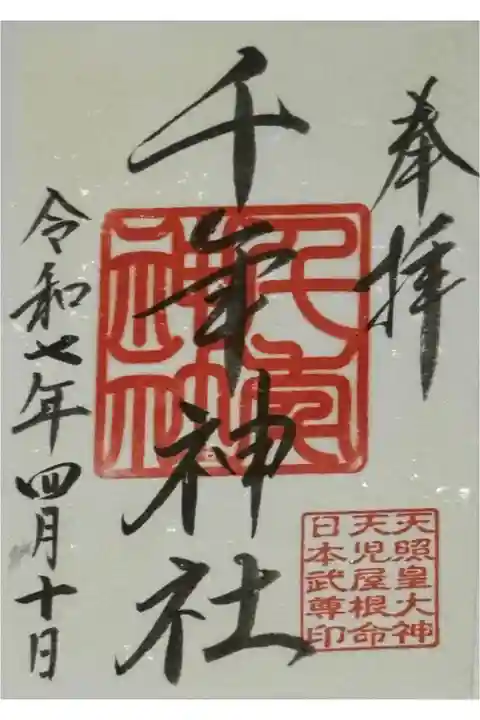 奉拝
千年神社
令和七年四月十日
千年
神社
天照皇大神
天児屋根命
日本武尊印